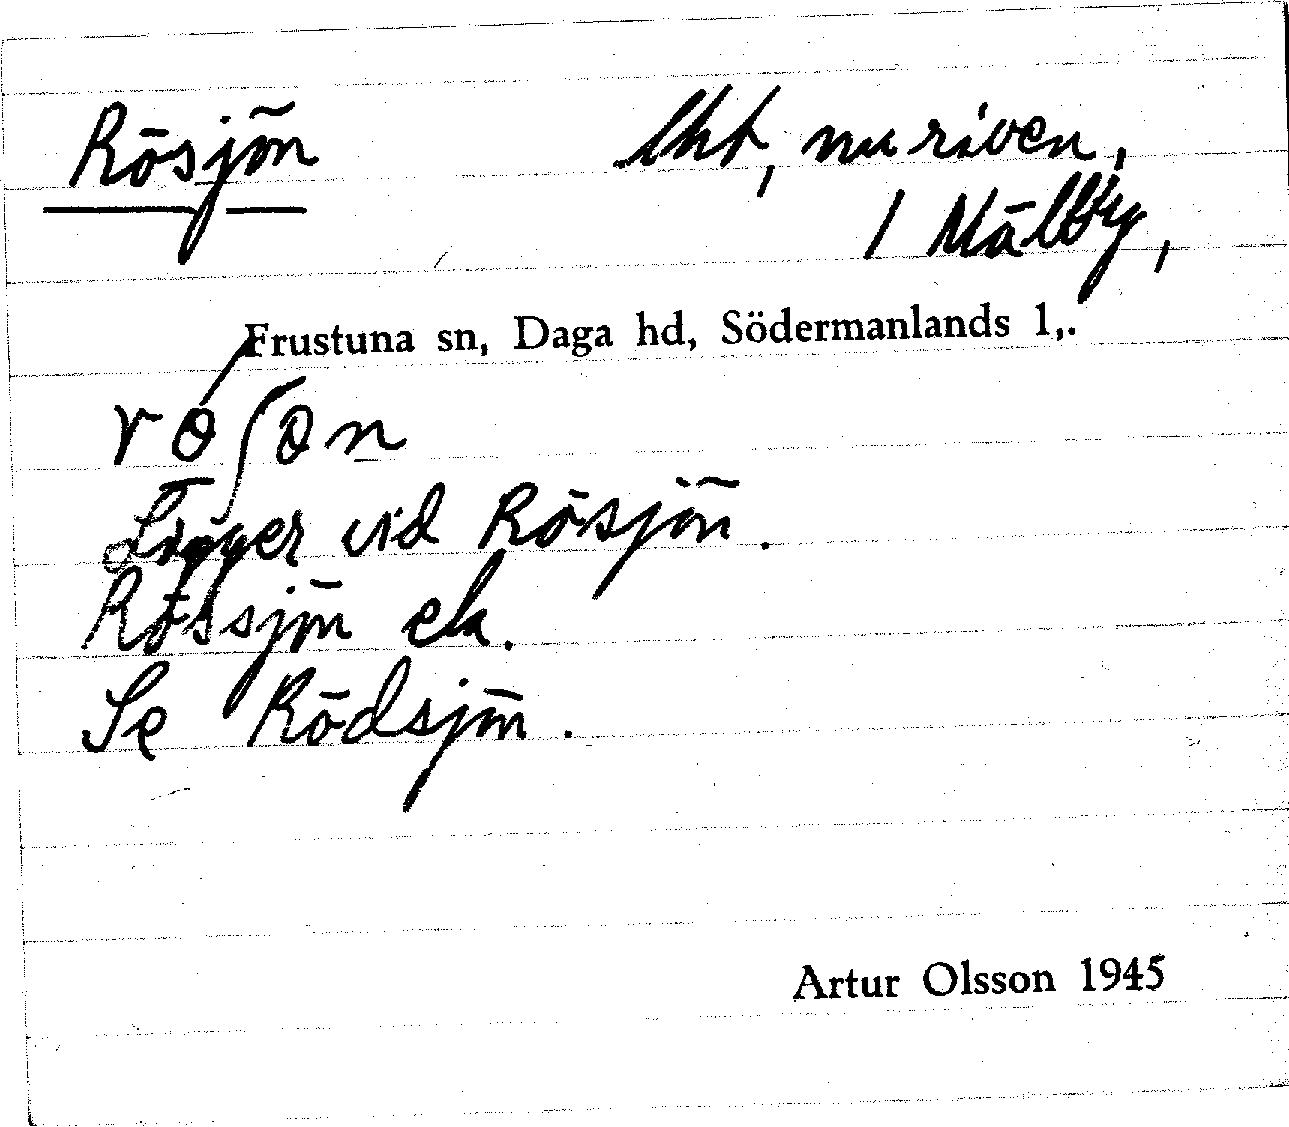 Rösjön lht, nu riven,
1 Mälby,
Frustuna sn, Daga hd, Södermanlands l,.
Ligger vid Rösjön.
Rössjön ek.
Se Rödsjön.
Artur Olsson 1945